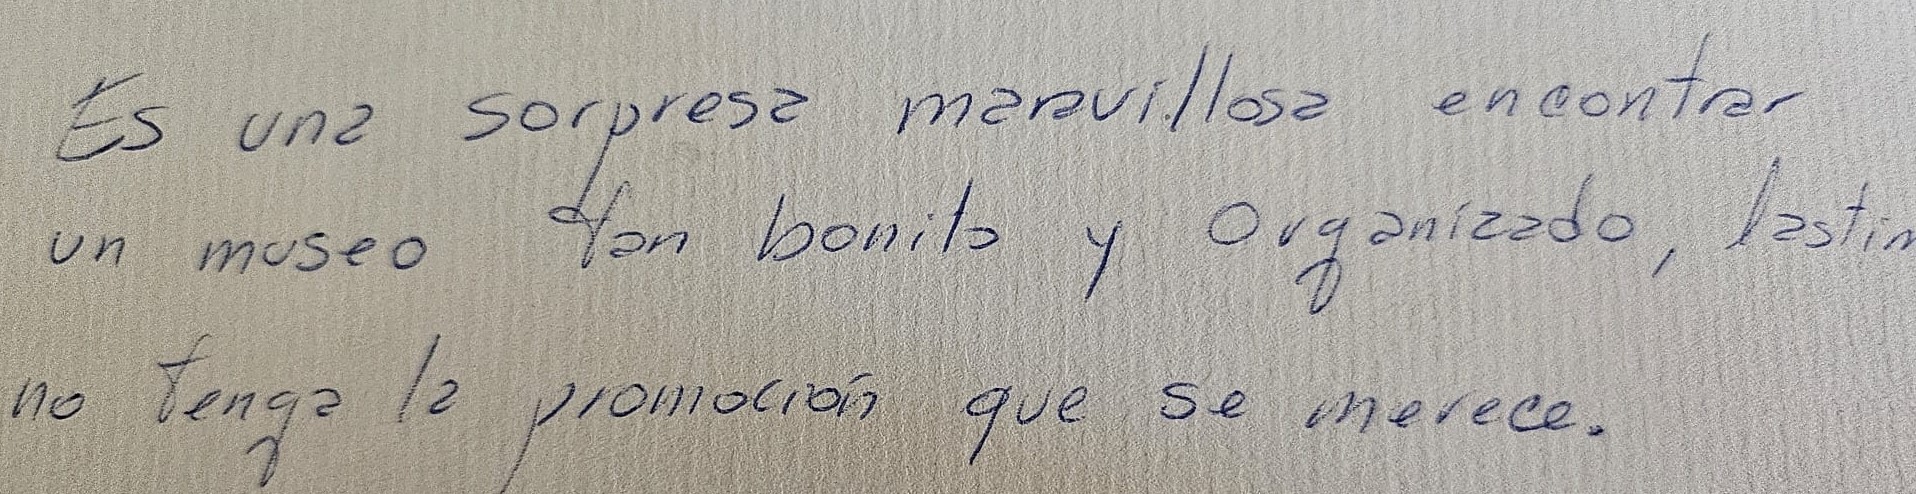 Es una sorpresa maravillosa encontrar
un museo tan bonito y Organizado, lastim
no tenga la promoción que se merece.